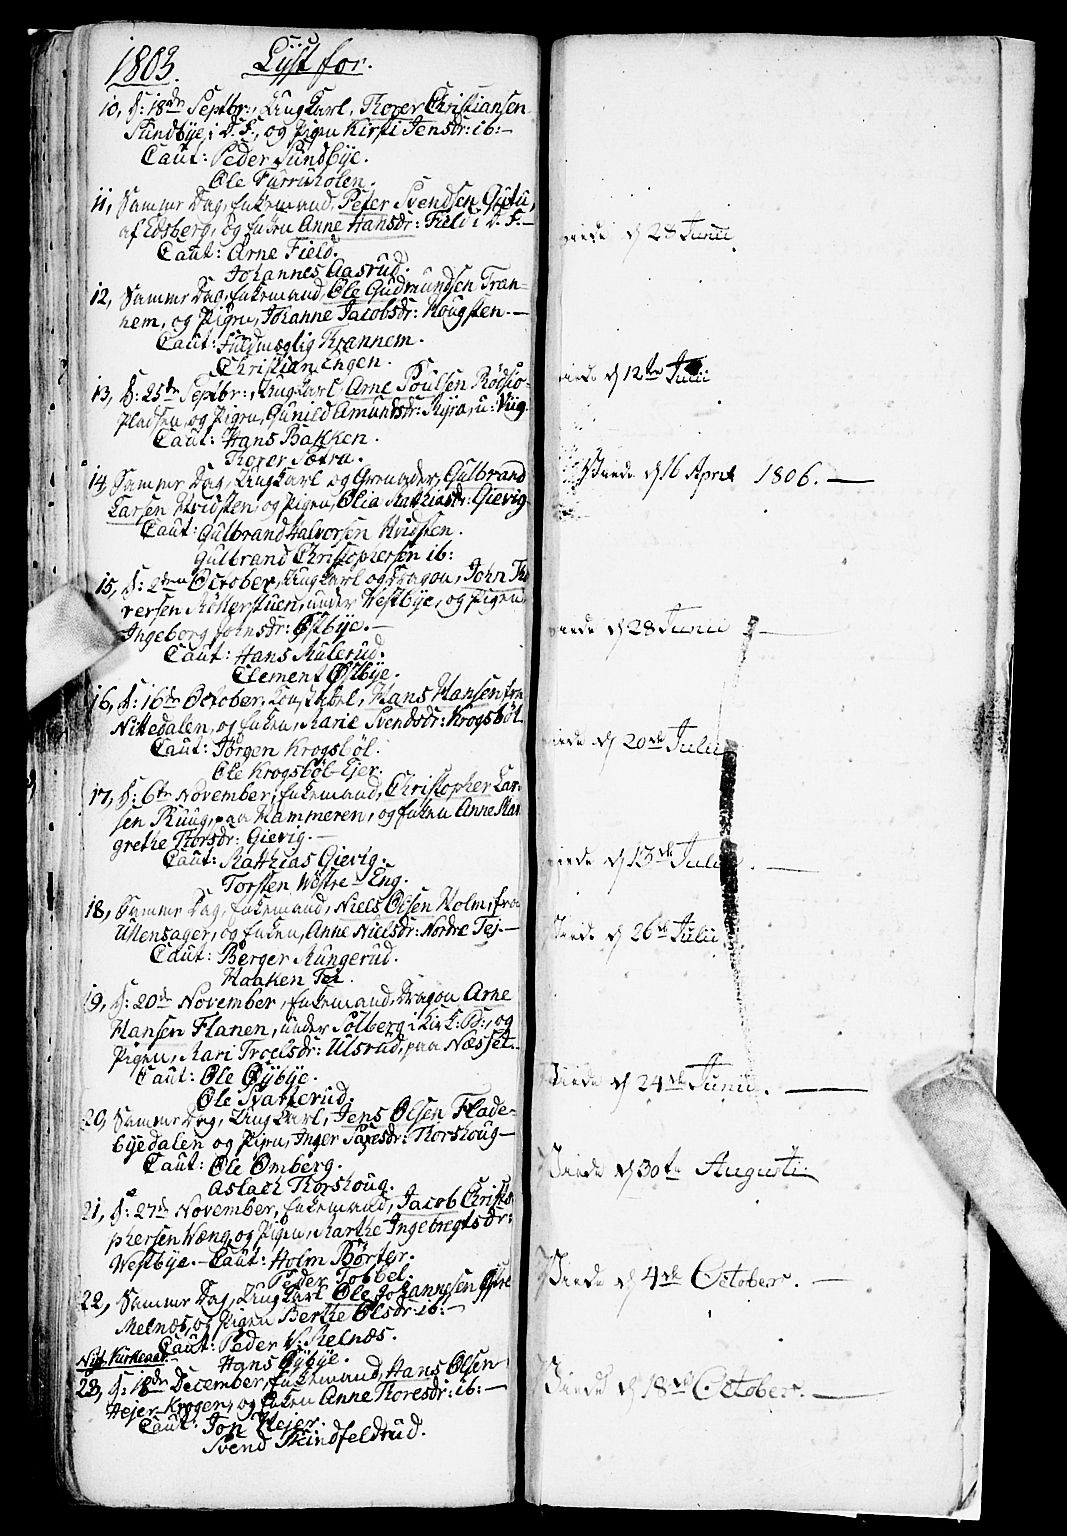 1803. Lyst for.
10, D: 18de Septbr:, Ung Karl, Thorer Christiansen
Sundbye, i D. F., og Pigen Kirsti Jensdr: ib:—
Caut: Peder Sundbye.
Ole Furruholen.
11, Samme Dag, Enkemand, Peter Svendsen
af Edsberg, og Enken Anne Hansdr: Field i D. F.—
Caut: Arne Field.
Johannes Aasrud.
12, Samme Dag, Enkemand, Ole Gudmundsen Tran-
nem, og Pigen, Johanne Jacobsdr: Hougsten.—
Caut: Trannem.
Christian Engen.
13, D: 25de Septbr:, Ung Karl Arne Poulsen
Pladsen, og Pigen, Gunild Amundsdr: u: Viig.
Caut: Hans Bakken.
Thorer Sætra.
14, Samme Dag, Ung Karl og Grenader, Gulbrand
Larsen Hvidsten, og Pigen, Olia Mathiasdr: Gievig
Caut: Gulbrand Halvorsen Hvidsten.
Gulbrand Christophersen ib:
15, D: 2den October, Ung Karl og Dragon, John Tho
rersen under Westbye, og Pigen,
Ingeborg Johnsdr: Østbye.—
Caut: Hans Mulerud.
Clement Østbye.
16, D: 16de October, Hans Hansen fra
Nittedalen, og Enken, Marie Svendsdr: Krogsbøl
Caut: Jørgen Krogsbøl.
Ole Krogsbøl-Ejer.
17, D: 6te November, Enkemand, Christopher Lar-
sen Ruug, paa Hammeren, og Enken Anne Mar
grethe Thorsdr: Gievig.—
Caut: Mathias Gievig.
Torsten Westre-Eng.
18, Samme Dag, Enkemand, Niels Olsen Holm, fra
Ullensager, og Enken, Anne Nielsdr: Nordre Tej.—
Caut: Berger Mungerud.
Haaken Tei.
19, D: 20de November, Enkemand, Dragon Arne
Hansen Flanen, under Solberg i Kirk: B:, og
Pigen, Kari Troelsdr: Ulsrud, paa Næsset.
Caut: Ole Øybye.
Ole Svarterud.
20, Samme Dag, Ung Karl, Jens Olsen Flade-
byedalen og Pigen, Inger Thorshoug—
Caut: Ole Omberg.
Aslach Thorshoug.
21, D: 27de November, Enkemand, Jacob Christo
phersen Wæng, og Pigen, Marthe Ingebregtsdr:
Westbye.— Caut: Holm Børter.
Peder Tobbel.
22, Samme Dag, Ung Karl Ole Johannesen Øfre
Melnæs, og Pigen Berthe Olsdr: ib:—
Caut: Peder V: Melnæs.
Nyt Kirkeaar. Hans Øybye.
23, D: 18de December, Enkemand, Hans Olsen
Hejer-Krogen, og Enken Anne Thoresdr: ib:—
Caut: Jon Hejer.
Svend Skindfeldrud.
viede d 28 Junii.
viede d 12te Julii
Viede d 16 April 1806.—
viede d 28 Junii —
viede d 20de Julii
viede d 13de Julii. —
Viede d 26de Julii
Viede d 24de Junii. —
Viede d 30te Augusti.
Viede d 4de October. —
Viede d 18de October. —